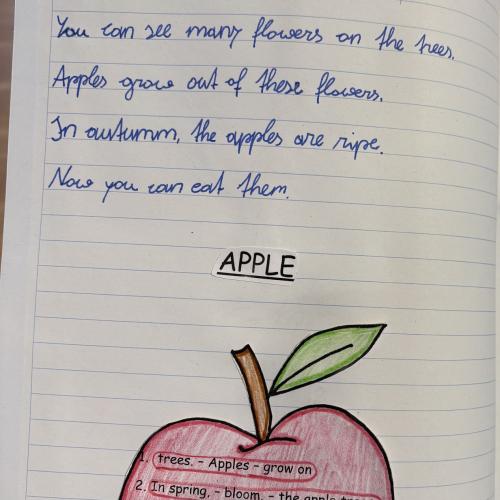 You can see many flowers on the trees.
Apples grow out of these flowers.
In autumm, the apples are ripe.
Now you can eat them.
APPLE
1. trees. - Apples - grow on
2. In spring, - bloom. - the apple trees